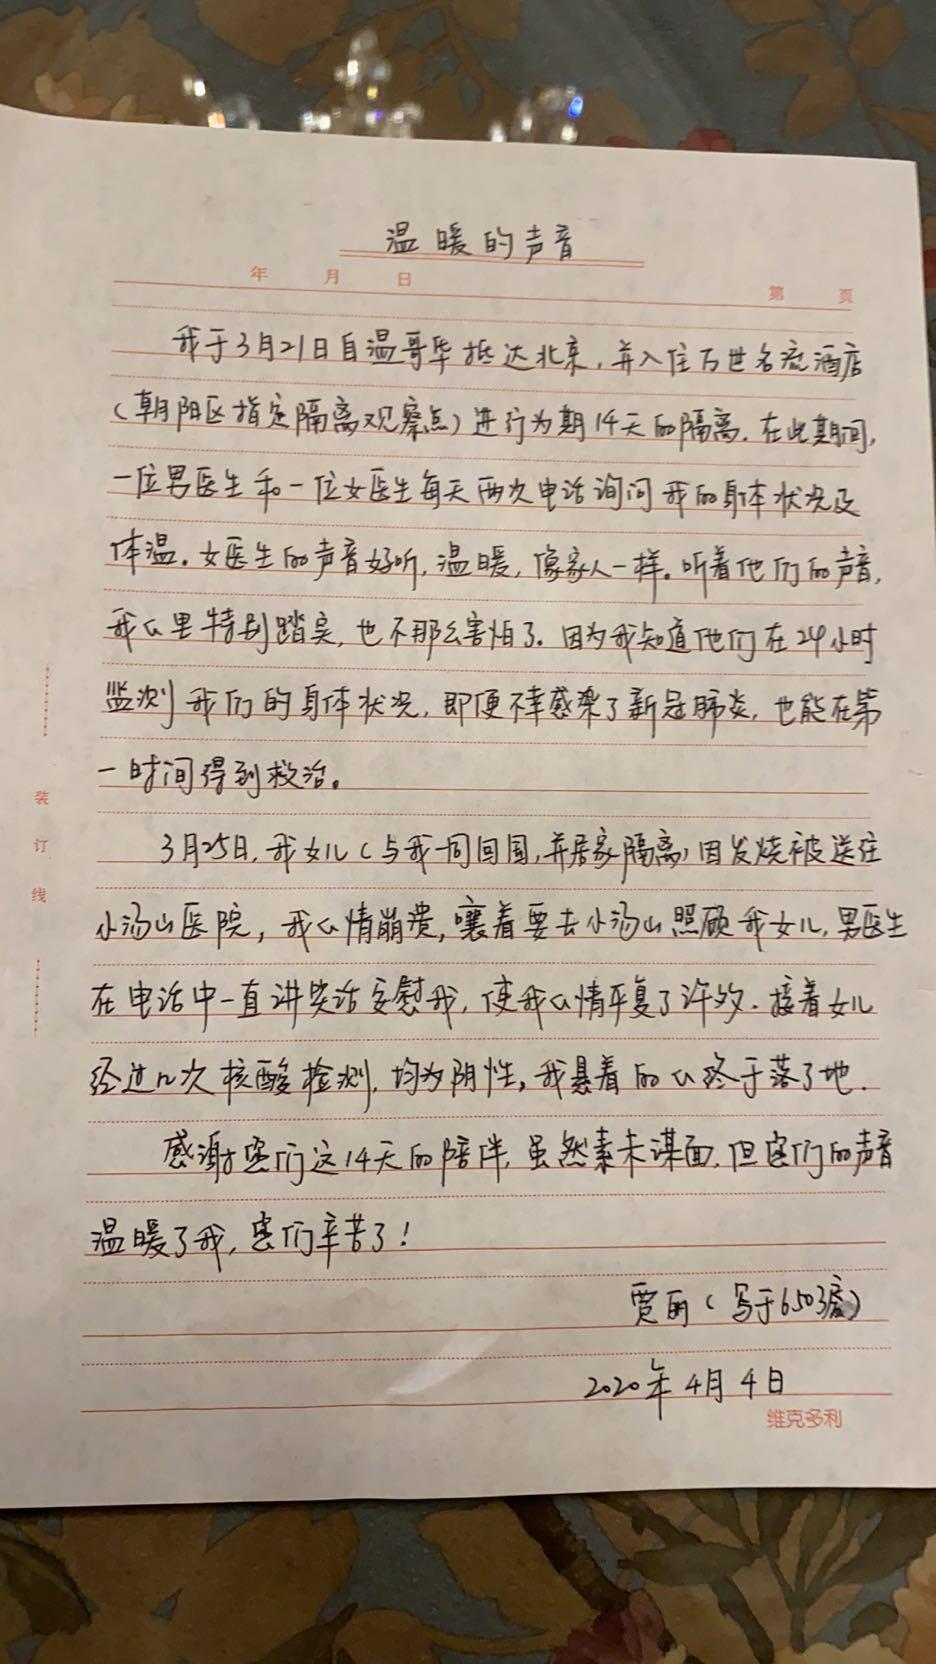 温暖的声音
年 月 日
第 页
我于3月21日自温哥华抵达北京,并入住万世名流酒店
(朝阳区指定隔离观察点)进行为期14天的隔离.在此期间,
一位男医生和一位女医生每天两次电话询问我的身体状况及
体温。女医生的声音好听,温暖,像家人一样。听着他们的声音,
我心里特别踏实,也不那么害怕了.因为我知道他们在24小时
监测我们的身体状况,即便不幸感染了新冠肺炎,也能在第
一时间得到救治。
3月25日,我女儿(与我一同回国,并居家隔离)因发烧被送往
小汤山医院,我心情崩溃,嚷着要去小汤山照顾我女儿,男医生
在电话中一直讲笑话安慰我,使我心情平复了许多.接着女儿
经过几次核酸检测,均为阴性,我悬着的心终于落了地.
感谢您们这14天的陪伴,虽然素未谋面,但您们的声音
温暖了我,您们辛苦了!
贾丽(写于6503房)
2020年4月4日
维克多利
装
订
线